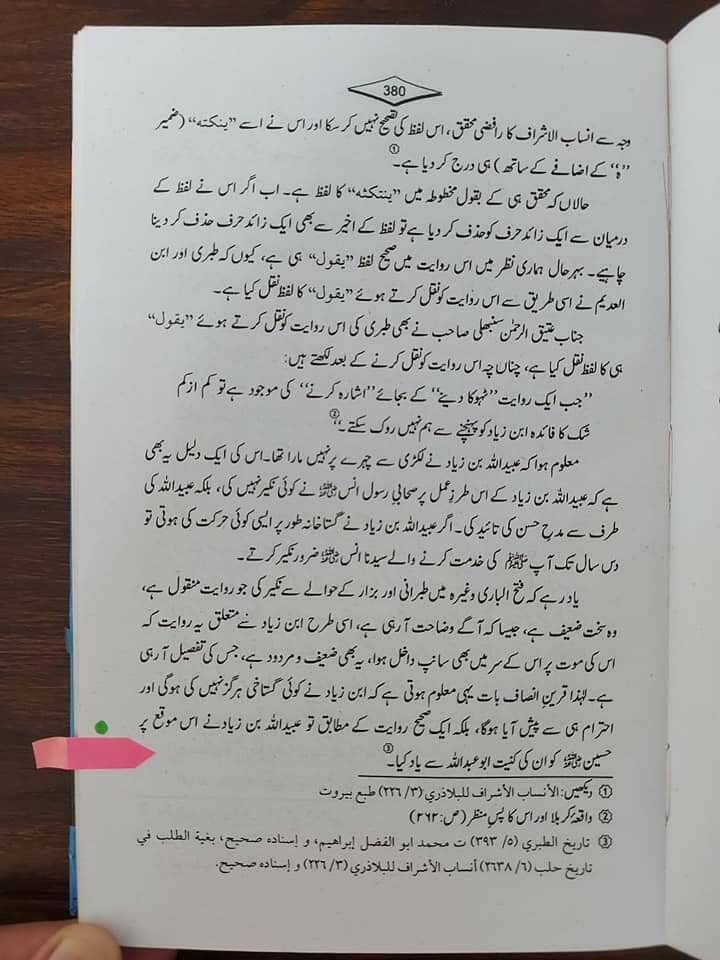 380
وجہ سے انساب الاشراف کا رافضی محقق، اس لفظ کی تصحیح نہیں کر سکا اور اس نے اسے ”ینکته“ (ضمیر
”ہ“ کے اضافے کے ساتھ) ہی درج کر دیا ہے۔①
حالاں کہ محقق ہی کے بقول مخطوطہ میں ”ینتکثه“ کا لفظ ہے۔ اب اگر اس نے لفظ کے
درمیان سے ایک زائد حرف کو حذف کر دیا ہے تو لفظ کے اخیر سے بھی ایک زائد حرف حذف کر دینا
چاہیے۔ بہرحال ہماری نظر میں اس روایت میں صحیح لفظ ”یقول“ ہی ہے، کیوں کہ طبری اور ابن
العدیم نے اسی طریق سے اس روایت کو نقل کرتے ہوئے ”یقول“ کا لفظ نقل کیا ہے۔
جناب عتیق الرحمٰن سنبھلی صاحب نے بھی طبری کی اس روایت کو نقل کرتے ہوئے ”یقول“
ہی کا لفظ نقل کیا ہے، چناں چہ اس روایت کو نقل کرنے کے بعد لکھتے ہیں:
”جب ایک روایت ”ٹھوکا دینے“ کے بجائے ”اشارہ کرنے“ کی موجود ہے تو کم از کم
شک کا فائدہ ابن زیاد کو پہنچنے سے ہم نہیں روک سکتے۔“②
معلوم ہوا کہ عبیداللہ بن زیاد نے لکڑی سے چہرے پر نہیں مارا تھا۔ اس کی ایک دلیل یہ بھی
ہے کہ عبیداللہ بن زیاد کے اس طرزِ عمل پر صحابیِ رسول انس رضی اللہ عنہ نے کوئی نکیر نہیں کی، بلکہ عبیداللہ کی
طرف سے مدحِ حسن کی تائید کی۔ اگر عبیداللہ بن زیاد نے گستاخانہ طور پر ایسی کوئی حرکت کی ہوتی تو
دس سال تک آپ ﷺ کی خدمت کرنے والے سیدنا انس رضی اللہ عنہ ضرور نکیر کرتے۔
یاد رہے کہ فتح الباری وغیرہ میں طبرانی اور بزار کے حوالے سے نکیر کی جو روایت منقول ہے،
وہ سخت ضعیف ہے، جیسا کہ آگے وضاحت آرہی ہے، اسی طرح ابن زیاد سے متعلق یہ روایت کہ
اس کی موت پر اس کے سر میں بھی سانپ داخل ہوا، یہ بھی ضعیف و مردود ہے، جس کی تفصیل آرہی
ہے۔ لہٰذا قرینِ انصاف بات یہی معلوم ہوتی ہے کہ ابن زیاد نے کوئی گستاخی ہرگز نہیں کی ہوگی اور
احترام ہی سے پیش آیا ہوگا، بلکہ ایک صحیح روایت کے مطابق تو عبیداللہ بن زیاد نے اس موقع پر
حسین رضی اللہ عنہ کو ان کی کنیت ابو عبداللہ سے یاد کیا۔③
① دیکھیں: الأنساب الأشراف للبلاذري (٣/ ٢٢٦) طبع بيروت
② واقعہ کربلا اور اس کا پس منظر (ص: ۲۶۲)
③ تاريخ الطبري (٥/ ٣٩٣) ت محمد ابو الفضل إبراهيم، و إسناده صحيح، بغية الطلب في
تاريخ حلب (٦/ ٢٦٣٨) أنساب الأشراف للبلاذري (٣/ ٢٢٦) و إسناده صحيح.